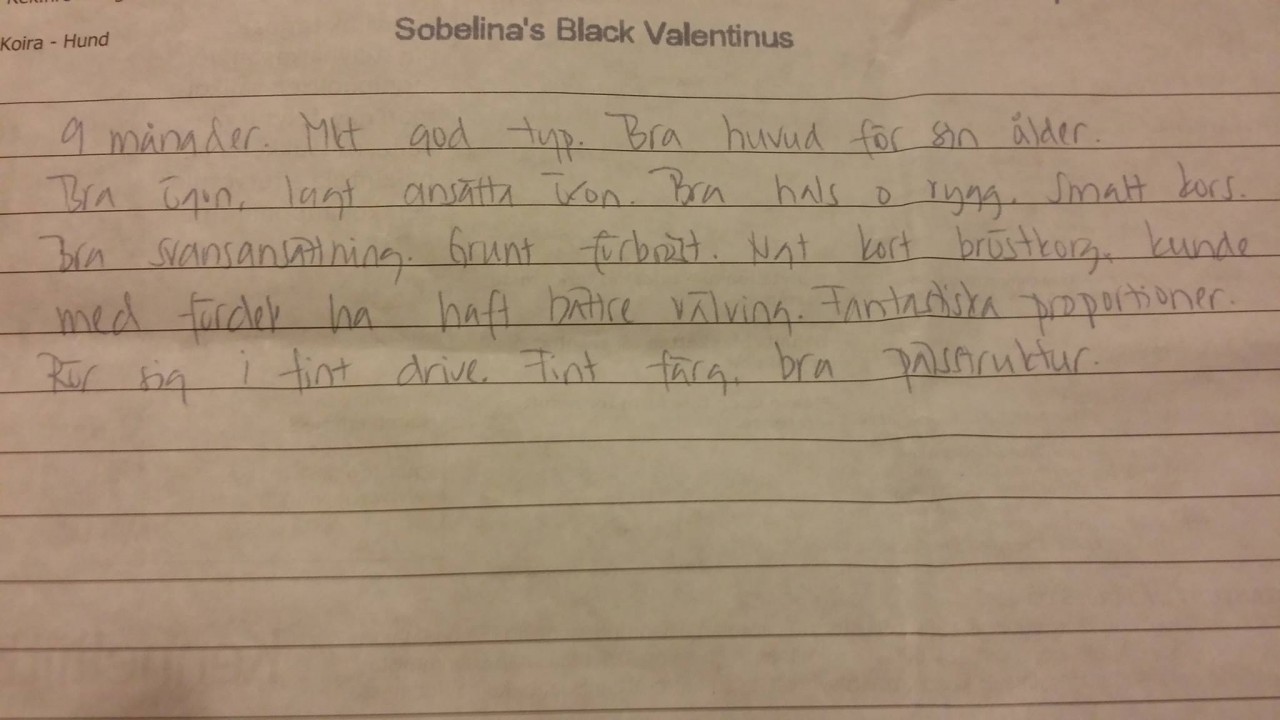 Koira - Hund
Sobelina's Black Valentinus
9 månader. Mkt god typ. Bra huvud för sin ålder.
Bra ögon, lågt ansatta öron. Bra hals o rygg. Smalt kors.
Bra svansansättning. Grunt förbröst. Ngt kort bröstkorg, kunde
med fördel ha haft bättre välving. Fantastiska proportioner.
Rör sig i fint drive. Fint färg, bra pälsstruktur.